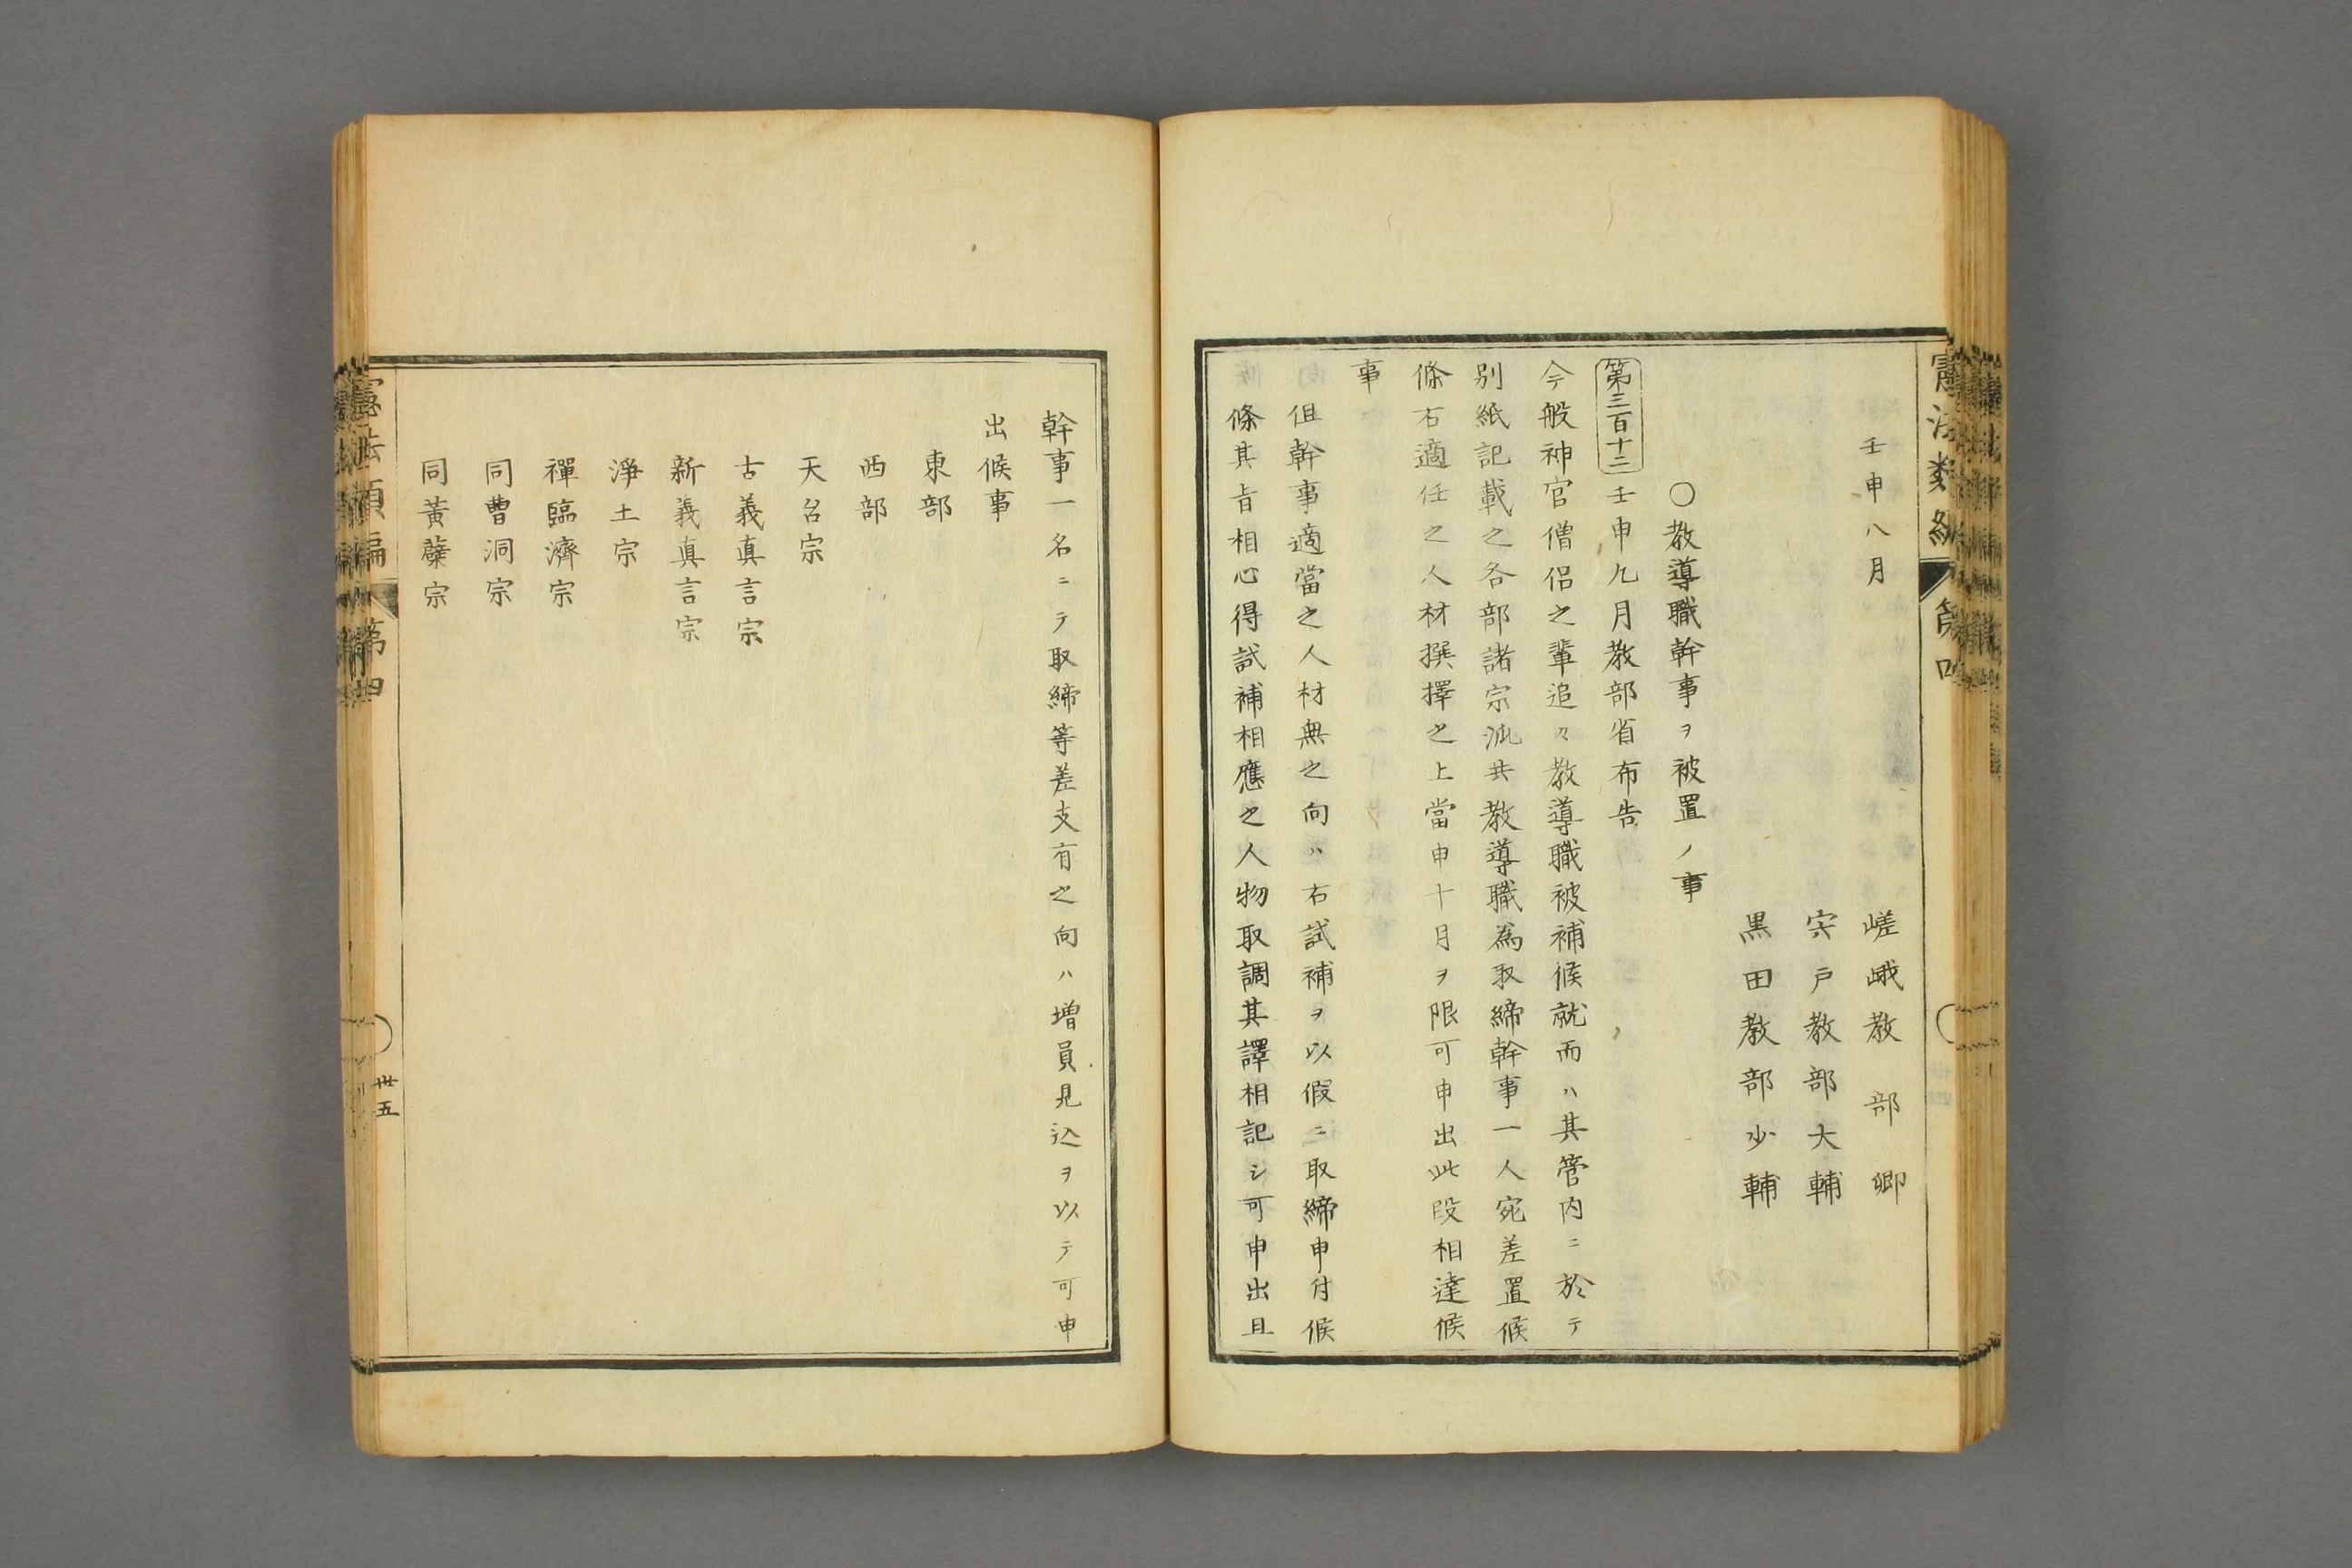 壬申八月
嵯峨教部卿
宍戸教部大輔
黒田教部少輔
○教導職幹事ヲ被置ノ事
第三百十二 壬申九月教部省布告
今般神官僧侶之輩追々教導職被補候就而ハ其管内ニ於テ
別紙記載之各部諸宗派共教導職為取締幹事一人宛差置候
條右適任之人材撰擇之上當申十月ヲ限可申出此段相達候
事
但幹事適當之人材無之向ハ右試補ヲ以假ニ取締申付候
條其旨相心得試補相應之人物取調其譯相記シ可申出且
幹事一名ニテ取締等差支有之向ハ増員見込ヲ以テ可申
出候事
東部
西部
天台宗
古義真言宗
新義真言宗
淨土宗
禪臨濟宗
同曹洞宗
同黃蘗宗
憲法類編 第四
卅五